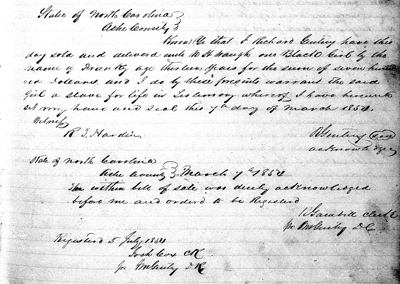 State of North Carolina
Ashe County
Know Ye that I Richard Gentry have this
day sold and delivered unto W H Waugh one Black Girl by the
name of age thirteen years for the sum of seven hund
red Dollars, and I do by these presents warrant the said
Girl a slave for life in Testamony whereof I have hereunto
set my hand and seal this 7th day of March 1854
R J Hardin
R Gentry
acknowledged
State of North Carolina
Ashe County March 7th 1854
The within bill of sale was duly acknowledged
before me and ordered to be Registered
Clerk
pr D C
Registered 5 July 1854
Josh Cox CR
pr D R